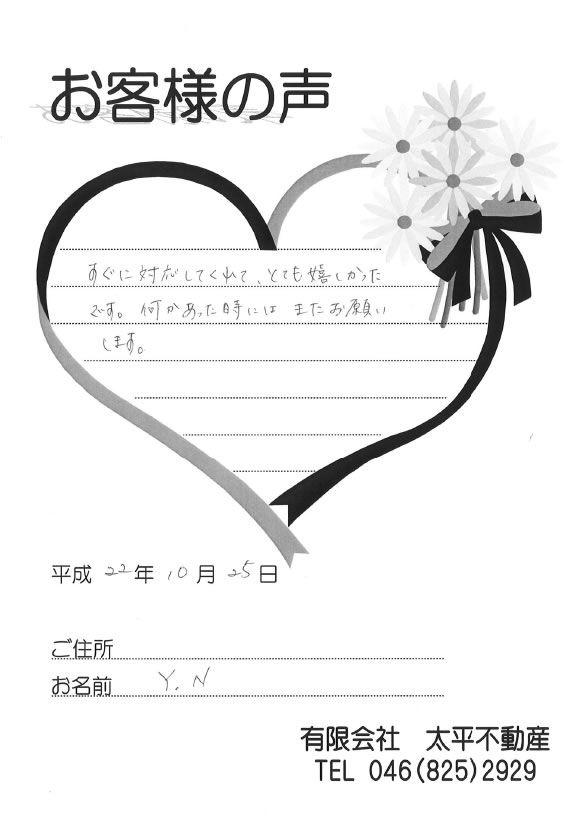 お客様の声
すぐに対応してくれて、とても嬉しかった
です。何かあった時には またお願い
します。
平成 22年 10月 25日
ご住所
お名前 Y.N
有限会社 太平不動産
TEL 046(825)2929